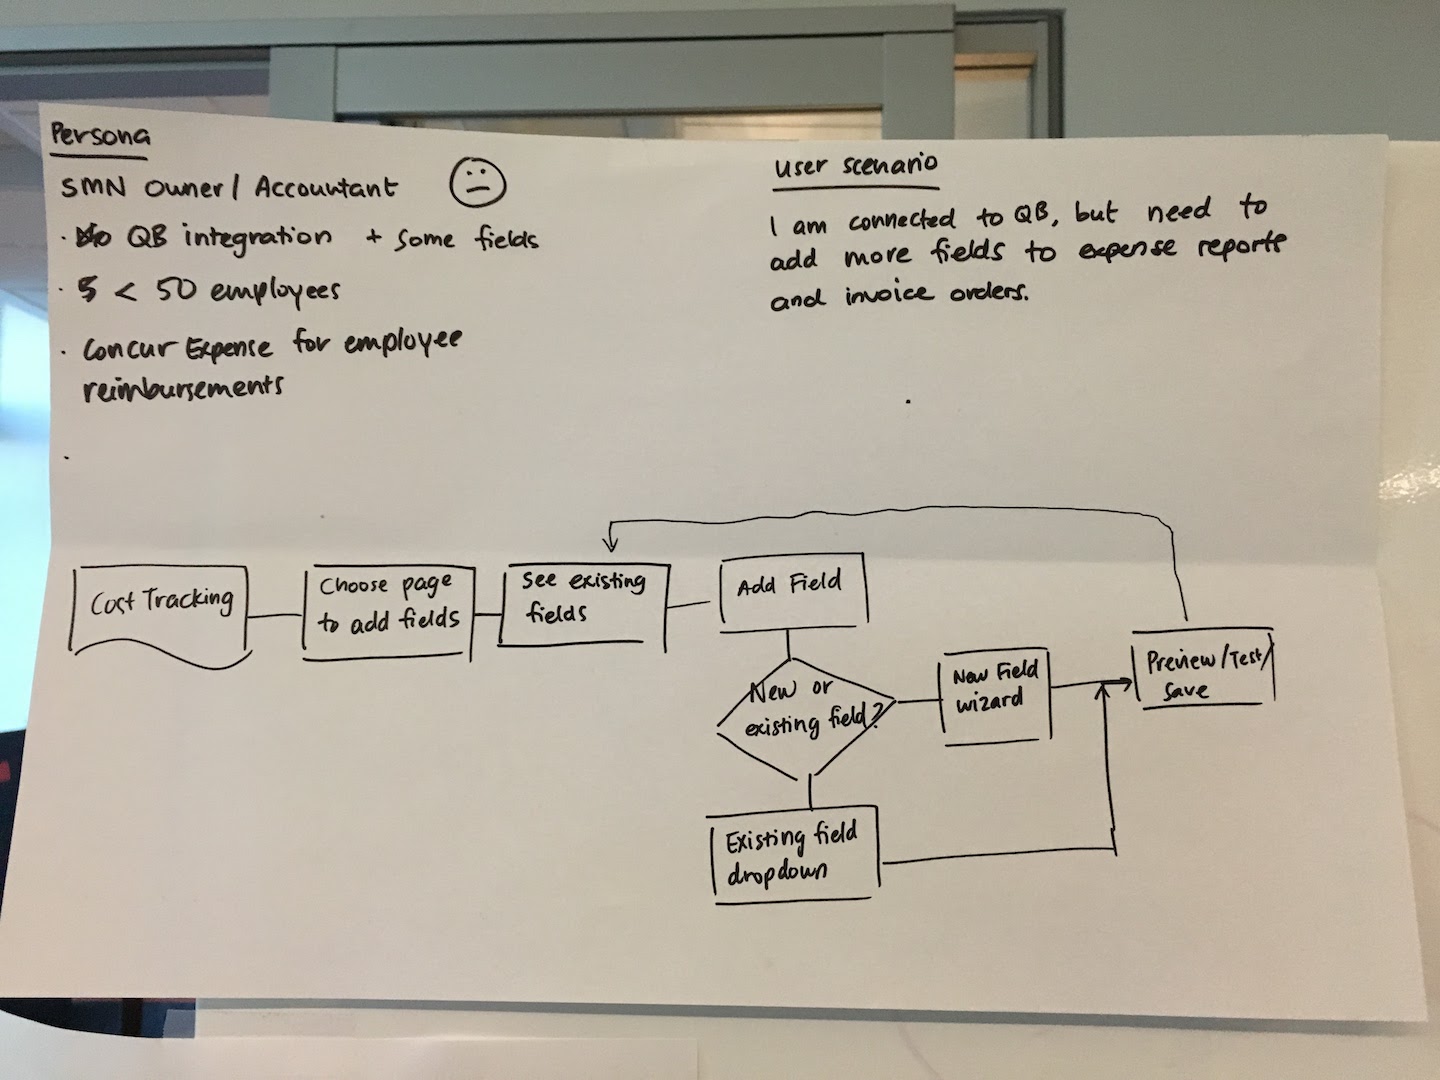 Persona
SMN Owner/ Accountant
· QB integration + Some fields
· 5 < 50 employees
· Concur Expense for employee
reimbursements
User scenario
I am connected to QB, but need to
add more fields to expense reports
and invoice orders.
Cost Tracking
Choose page
to add fields
See existing
fields
Add Field
New or
existing field?
New Field
wizard
Preview/Test/
Save
Existing field
dropdown